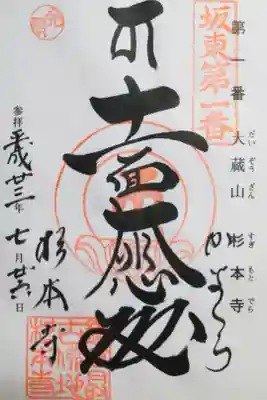 坂東第一番
第一番 大蔵山 杉本寺
だいぞうざん すぎもとでら
かまくら
十一面大悲殿
杉本寺
参拝 平成廿三年 七月廿六日